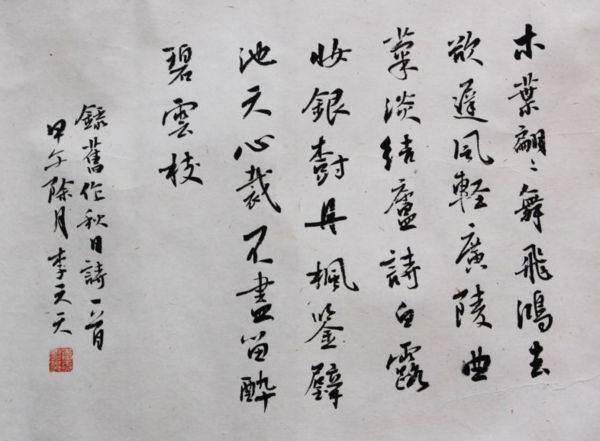 木葉翩〻舞飛鴻去
欲遲風軽廣陵曲
菊淡結廬詩白露
妝銀樹丹楓鑒璧
池天心裁不盡留醉
碧雲枝
録舊作秋日詩一首
甲午除月李天天